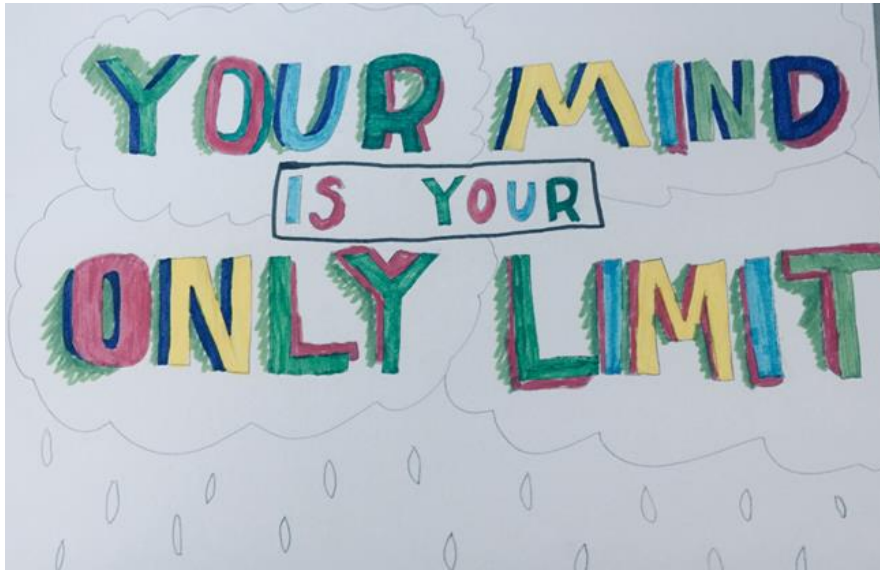 YOUR MIND
IS YOUR
ONLY LIMIT